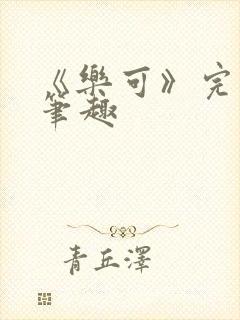 《樂可》完
筆趣
青丘澤